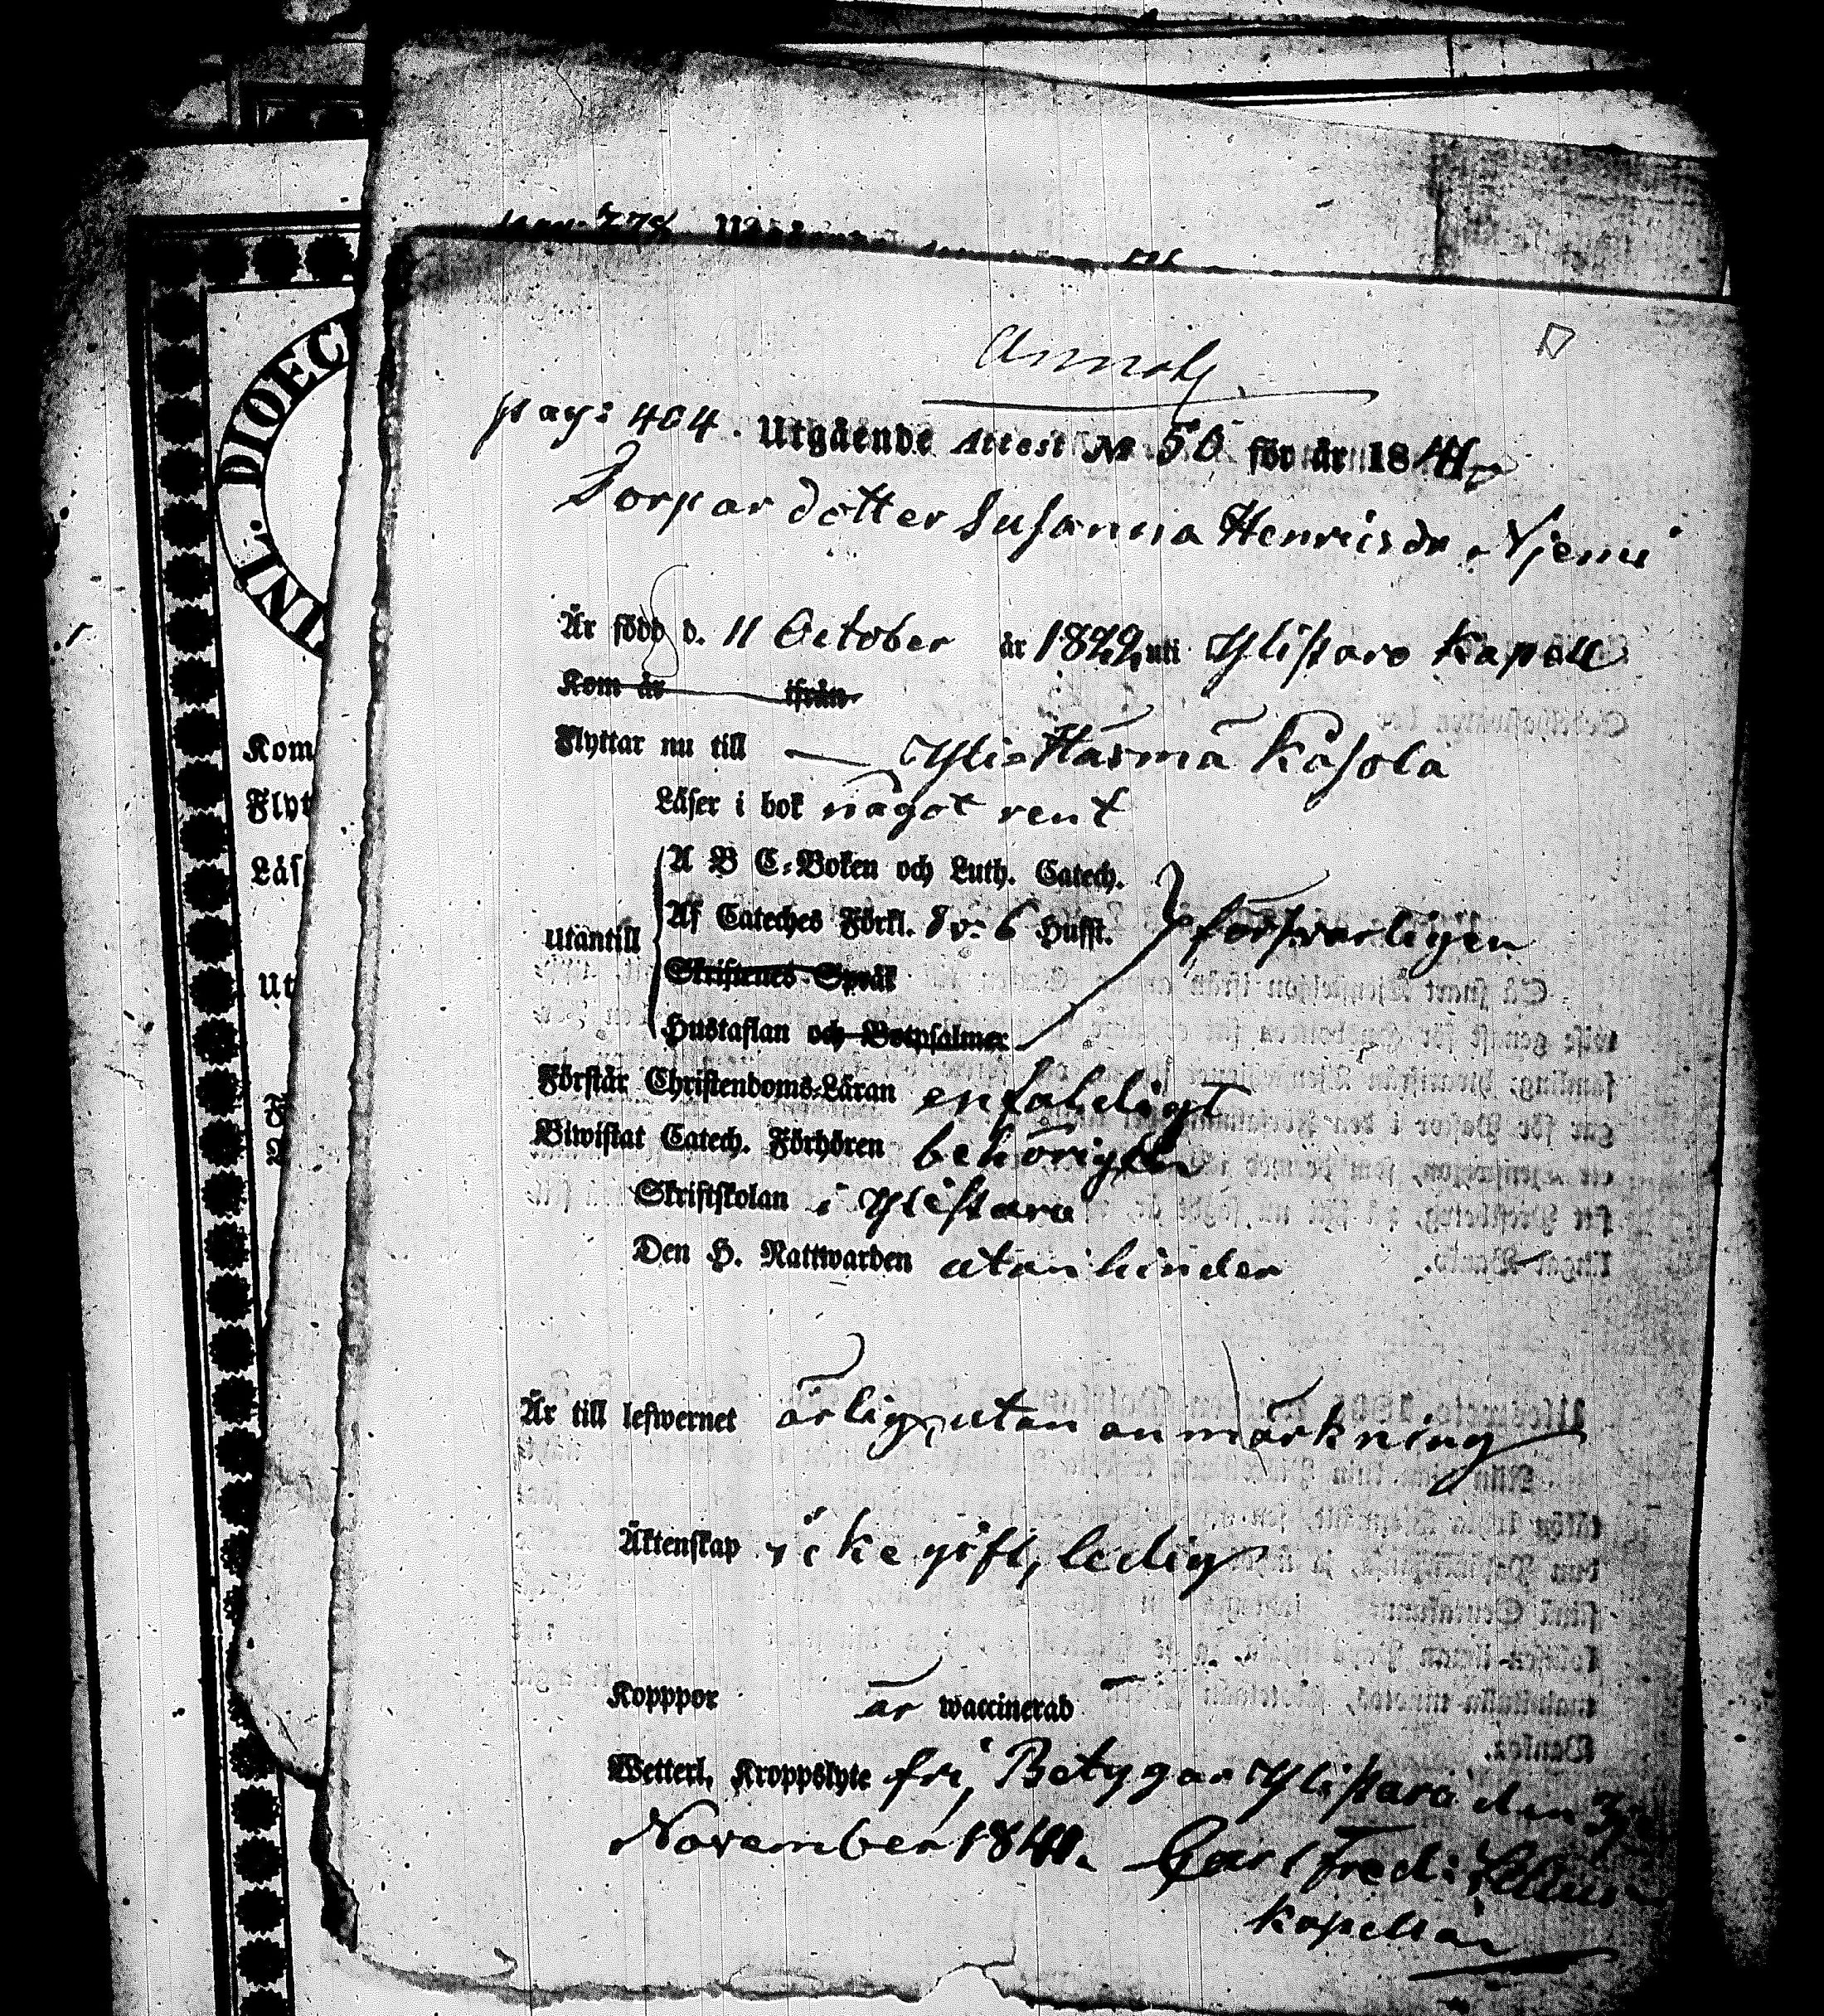 DIOEC
pag: 404. Utgående Attest № 50 för år 1841
Torpardotter Susanna Henricsdr Njemi
Är född d. 11 October år 1822, uti Ylistaro Kapell
Kom år ifrån
Flyttar nu till — Yli-Härmä Kåsola
Läser i bok något rent
utantill
A B C-Boken och Luth. Catech.
Af Cateches Förkl. 8 v: 6 Hufst. försvarligen
Skriftenes Språk
Hustaflan och Botpsalmer
Förstår Christendoms-Läran enfaldigt
Biwistat Catech. Förhören behörigen
Skriftskolan i Ylistaro
Den H. Nattwarden utan hinder
Är till lefwernet ärlig, utan anmärkning
Äktenskap icke gift, ledig
Kopppor är waccinerad
Wetterl. Kroppslyte fri, Betygar Ylistaro den 3je
November 1841. Carl Fred:
Kapellan
Kom
Flyt
Läs
Ut